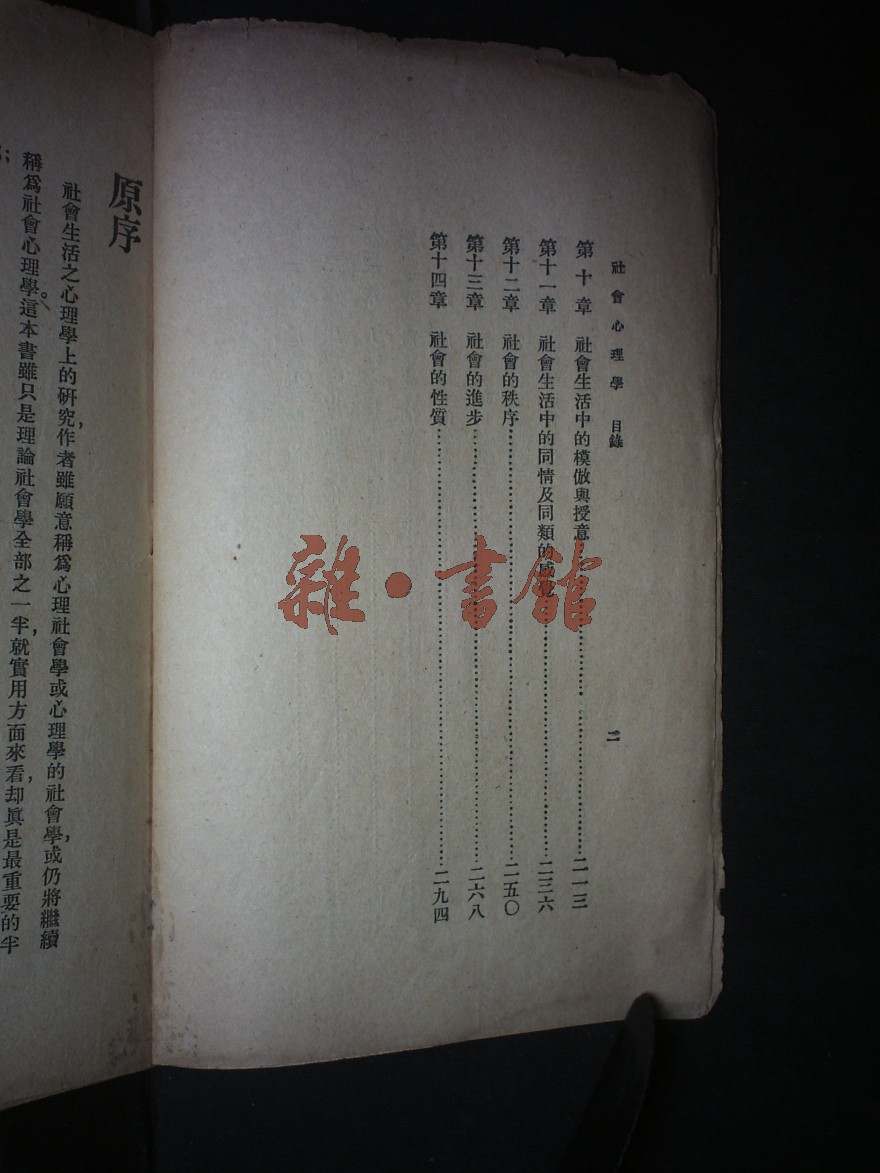 社會心理學 目錄
二
第十章 社會生活中的模倣與授意……二一三
第十一章 社會生活中的同情及同類的感覺……二三六
第十二章 社會的秩序……二五〇
第十三章 社會的進步……二六八
第十四章 社會的性質……二九四
雜·書館
原序
社會生活之心理學上的研究，作者雖願意稱爲心理社會學或心理學的社會學，或仍將繼續
稱爲社會心理學。這本書雖只是理論社會學全部之一半，就實用方面來看，却眞是最重要的半